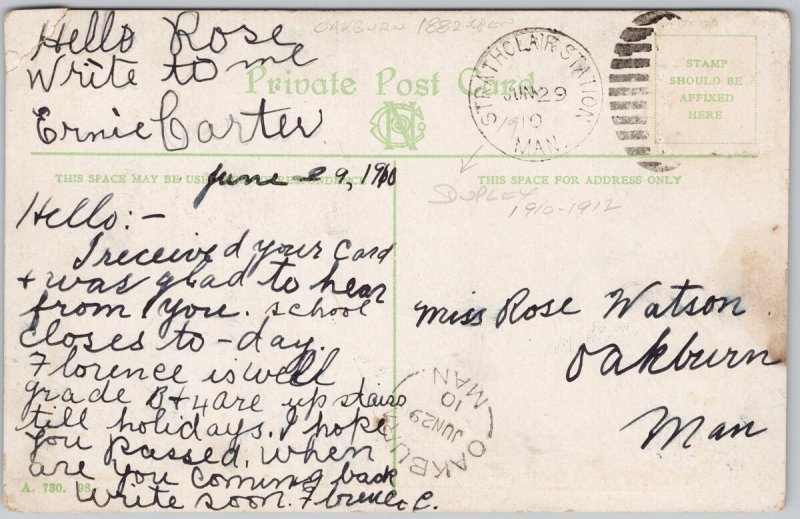 Hello Rose
Write to me
Ernie Carter
OAKBURN 1882
Private Post Card
STRATHCLAIR STATION
JUN 29
1910
MAN.
STAMP
SHOULD BE
AFFIXED
HERE
THIS SPACE MAY BE
June 29, 1910
THIS SPACE FOR ADDRESS ONLY
DUPLEX
1910-1912
Hello:-
I received your card
+ was glad to hear
from you. School
closes to-day.
Florence is well
grade B+4 are up stairs
till holidays. I hope
you passed. When
are you coming back
Write soon. Florence C.
Miss Rose Watson
Oakburn
Man
OAKBURN
JUN 29
10
MAN
A. 780. 98